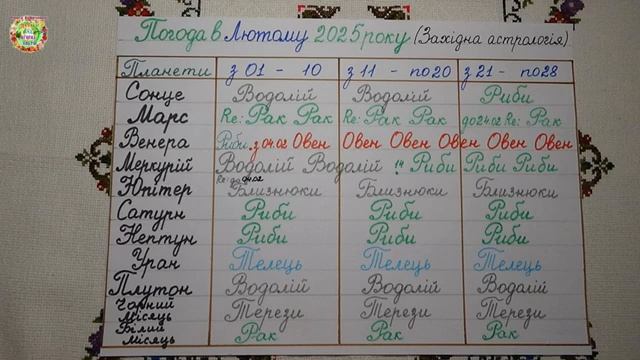 Погода в Лютому 2025 року (Західна астрологія)
Планети з 01 - 10 з 11 - по 20 з 21 - по 28
Сонце Водолій Водолій Риби
Марс Re: Рак Рак Re: Рак Рак до 24.02 Re: Рак
Венера Риби з 04.02 Овен Овен Овен Овен Овен Овен Овен
Меркурій Водолій Водолій 14 Риби Риби Риби
Re: до 04.02
Юпітер Близнюки Близнюки Близнюки
Сатурн Риби Риби Риби
Нептун Риби Риби Риби
Уран Телець Телець Телець
Плутон Водолій Водолій Водолій
Чорний місяць Терези Терези Терези
Білий місяць Рак Рак Рак